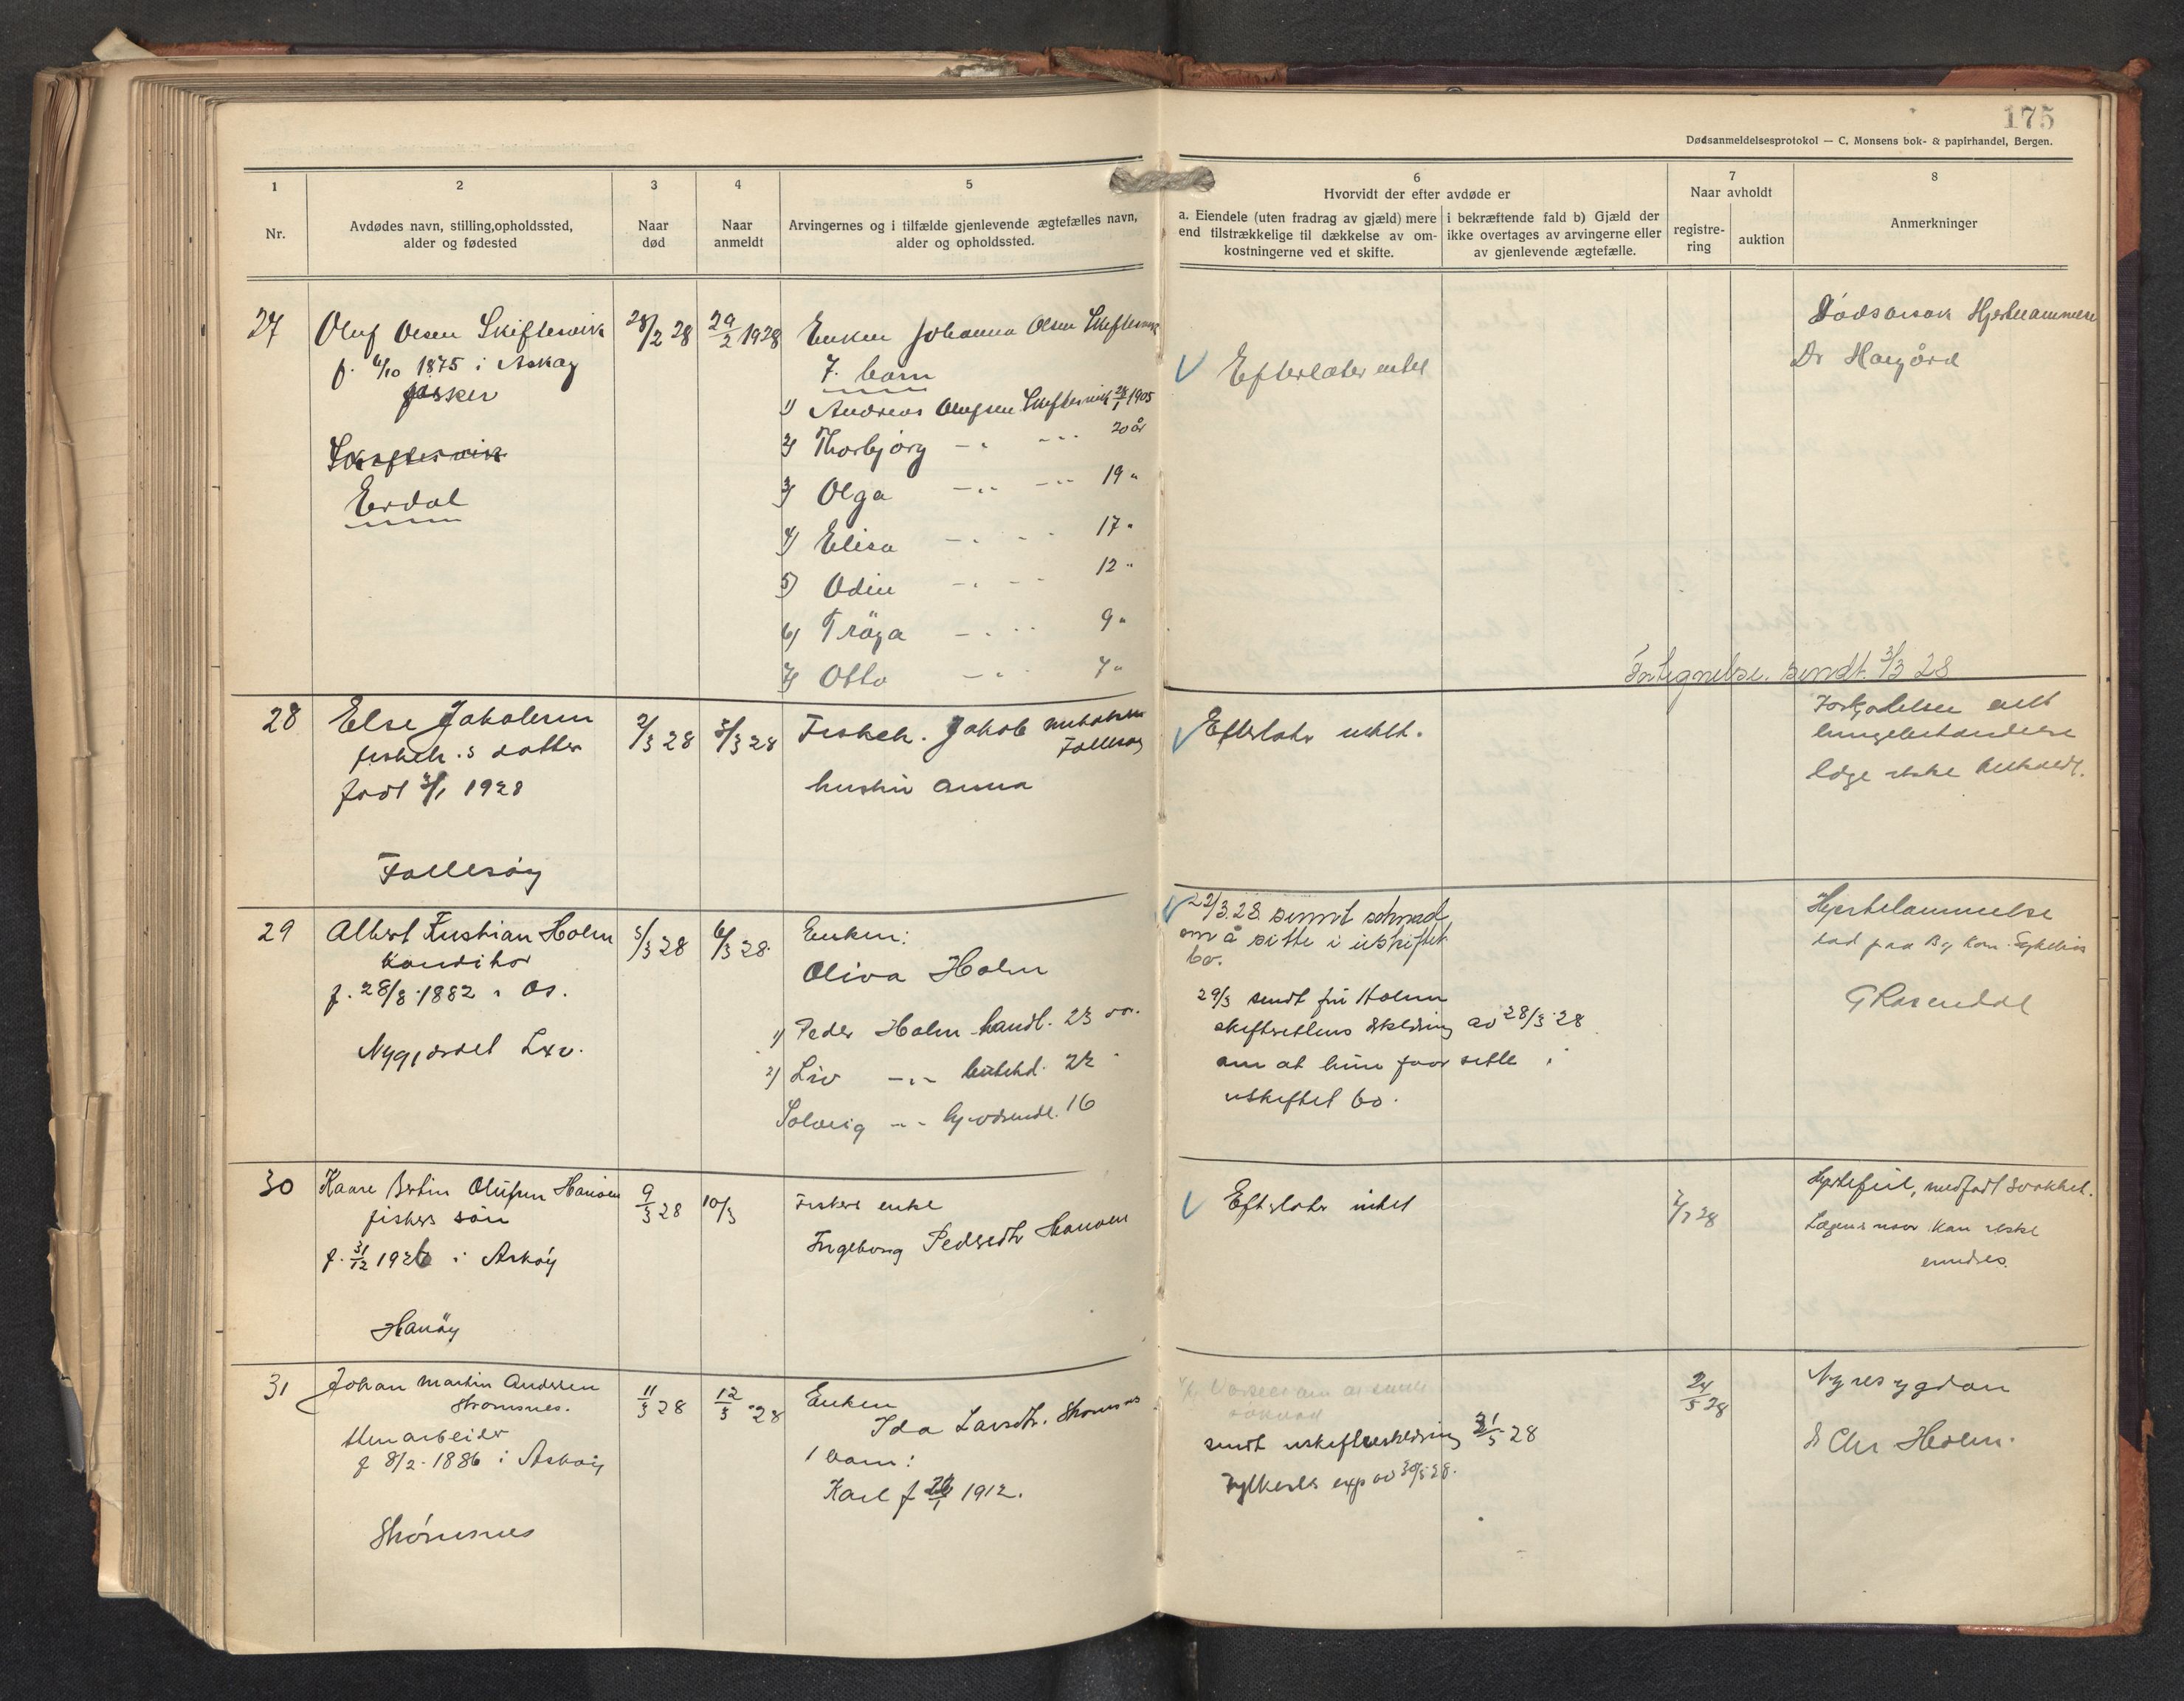 175
Dødsanmeldelsesprotokol — C. Monsens bok- & papirhandel, Bergen.
1
Nr.
2
Avdødes navn, stilling,opholdssted,
alder og fødested
3
Naar
død
4
Naar
anmeldt
5
Arvingernes og i tilfælde gjenlevende ægtefælles navn,
alder og opholdssted.
6
Hvorvidt der efter avdøde er
a. Eiendele (uten fradrag av gjæld) mere
end tilstrækkelige til dækkelse av om-
kostningerne ved et skifte.
i bekræftende fald b) Gjæld der
ikke overtages av arvingerne eller
av gjenlevende ægtefælle.
7
Naar avholdt
registre-
ring
auktion
8
Anmerkninger
27
Oluf Olsen Skiftesvik
f. 4/10 1875 i Askøy
fisker
Skiftesvik
Erdal
28/2 28
29/2 1928
Enken Johanna Olsen Skiftesvik
7 barn
1) Andreas Olufsen Skiftesvik 1905
2) Thorbjörg 20 år
3) Olga 19 "
4) Elisa 17 "
5) Odin 12 "
6) Tröga 9 "
7) Otto 7 "
Efterlater intet
Dødsårsak Hjertelammelse
Dr Haugård
Fortegnelse sendt 3/3 28
28
Else Jakobsen
fiskeh.s datter
født 1928
Follesøy
2/3 28
5/3 28
Fiskeh. Jakob
Follesøy
hustru Anna
Efterlater intet.
Forkjølelse
lungebetændelse
læge ikke
29
Albert Kristian Holm
konditor
f. 28/8 1882 i Os.
Nygjærdet Lxv.
5/3 28
6/3 28
Enken:
Oliva Holm
1) Peder Holm handl. 23 aar.
2) Liv 22
Solveig 16
22/3.28 sendt søknad
om å sitte i uskiftet
bo.
29/3 sendt fru Holm
skifterettens erklæring av 28/3 28
om at hun faar sitte i
uskiftet bo.
Hjertelammelse
død paa Bg. kom. Sykehus
G Rosendal
30
Kaare Bertin Olufsen Hanøen
fiskers søn
f. 31/12 1926 i Askøy
Hanøy
9/3 28
10/3
Fiskers enke
Ingeborg Pedersdtr Hanøen
Efterlater intet
28
Hjertefeil, medfødt svakhet.
Lægens navn kan ikke
erindres.
31
Johan Martin Andersen
Strømsnes.
Stenarbeider
f 8/2 1886 i Askøy
Strømsnes
11/3 28
12/3 28
Enken
Ida Larsdtr. Strømsnes
1 barn:
Karl f 1912.
sendt uskifteerklæring 21/5 28
Fylkesl. exp av 30/5 28.
24/5 28
Nyresygdom
Dr Chr Holm.